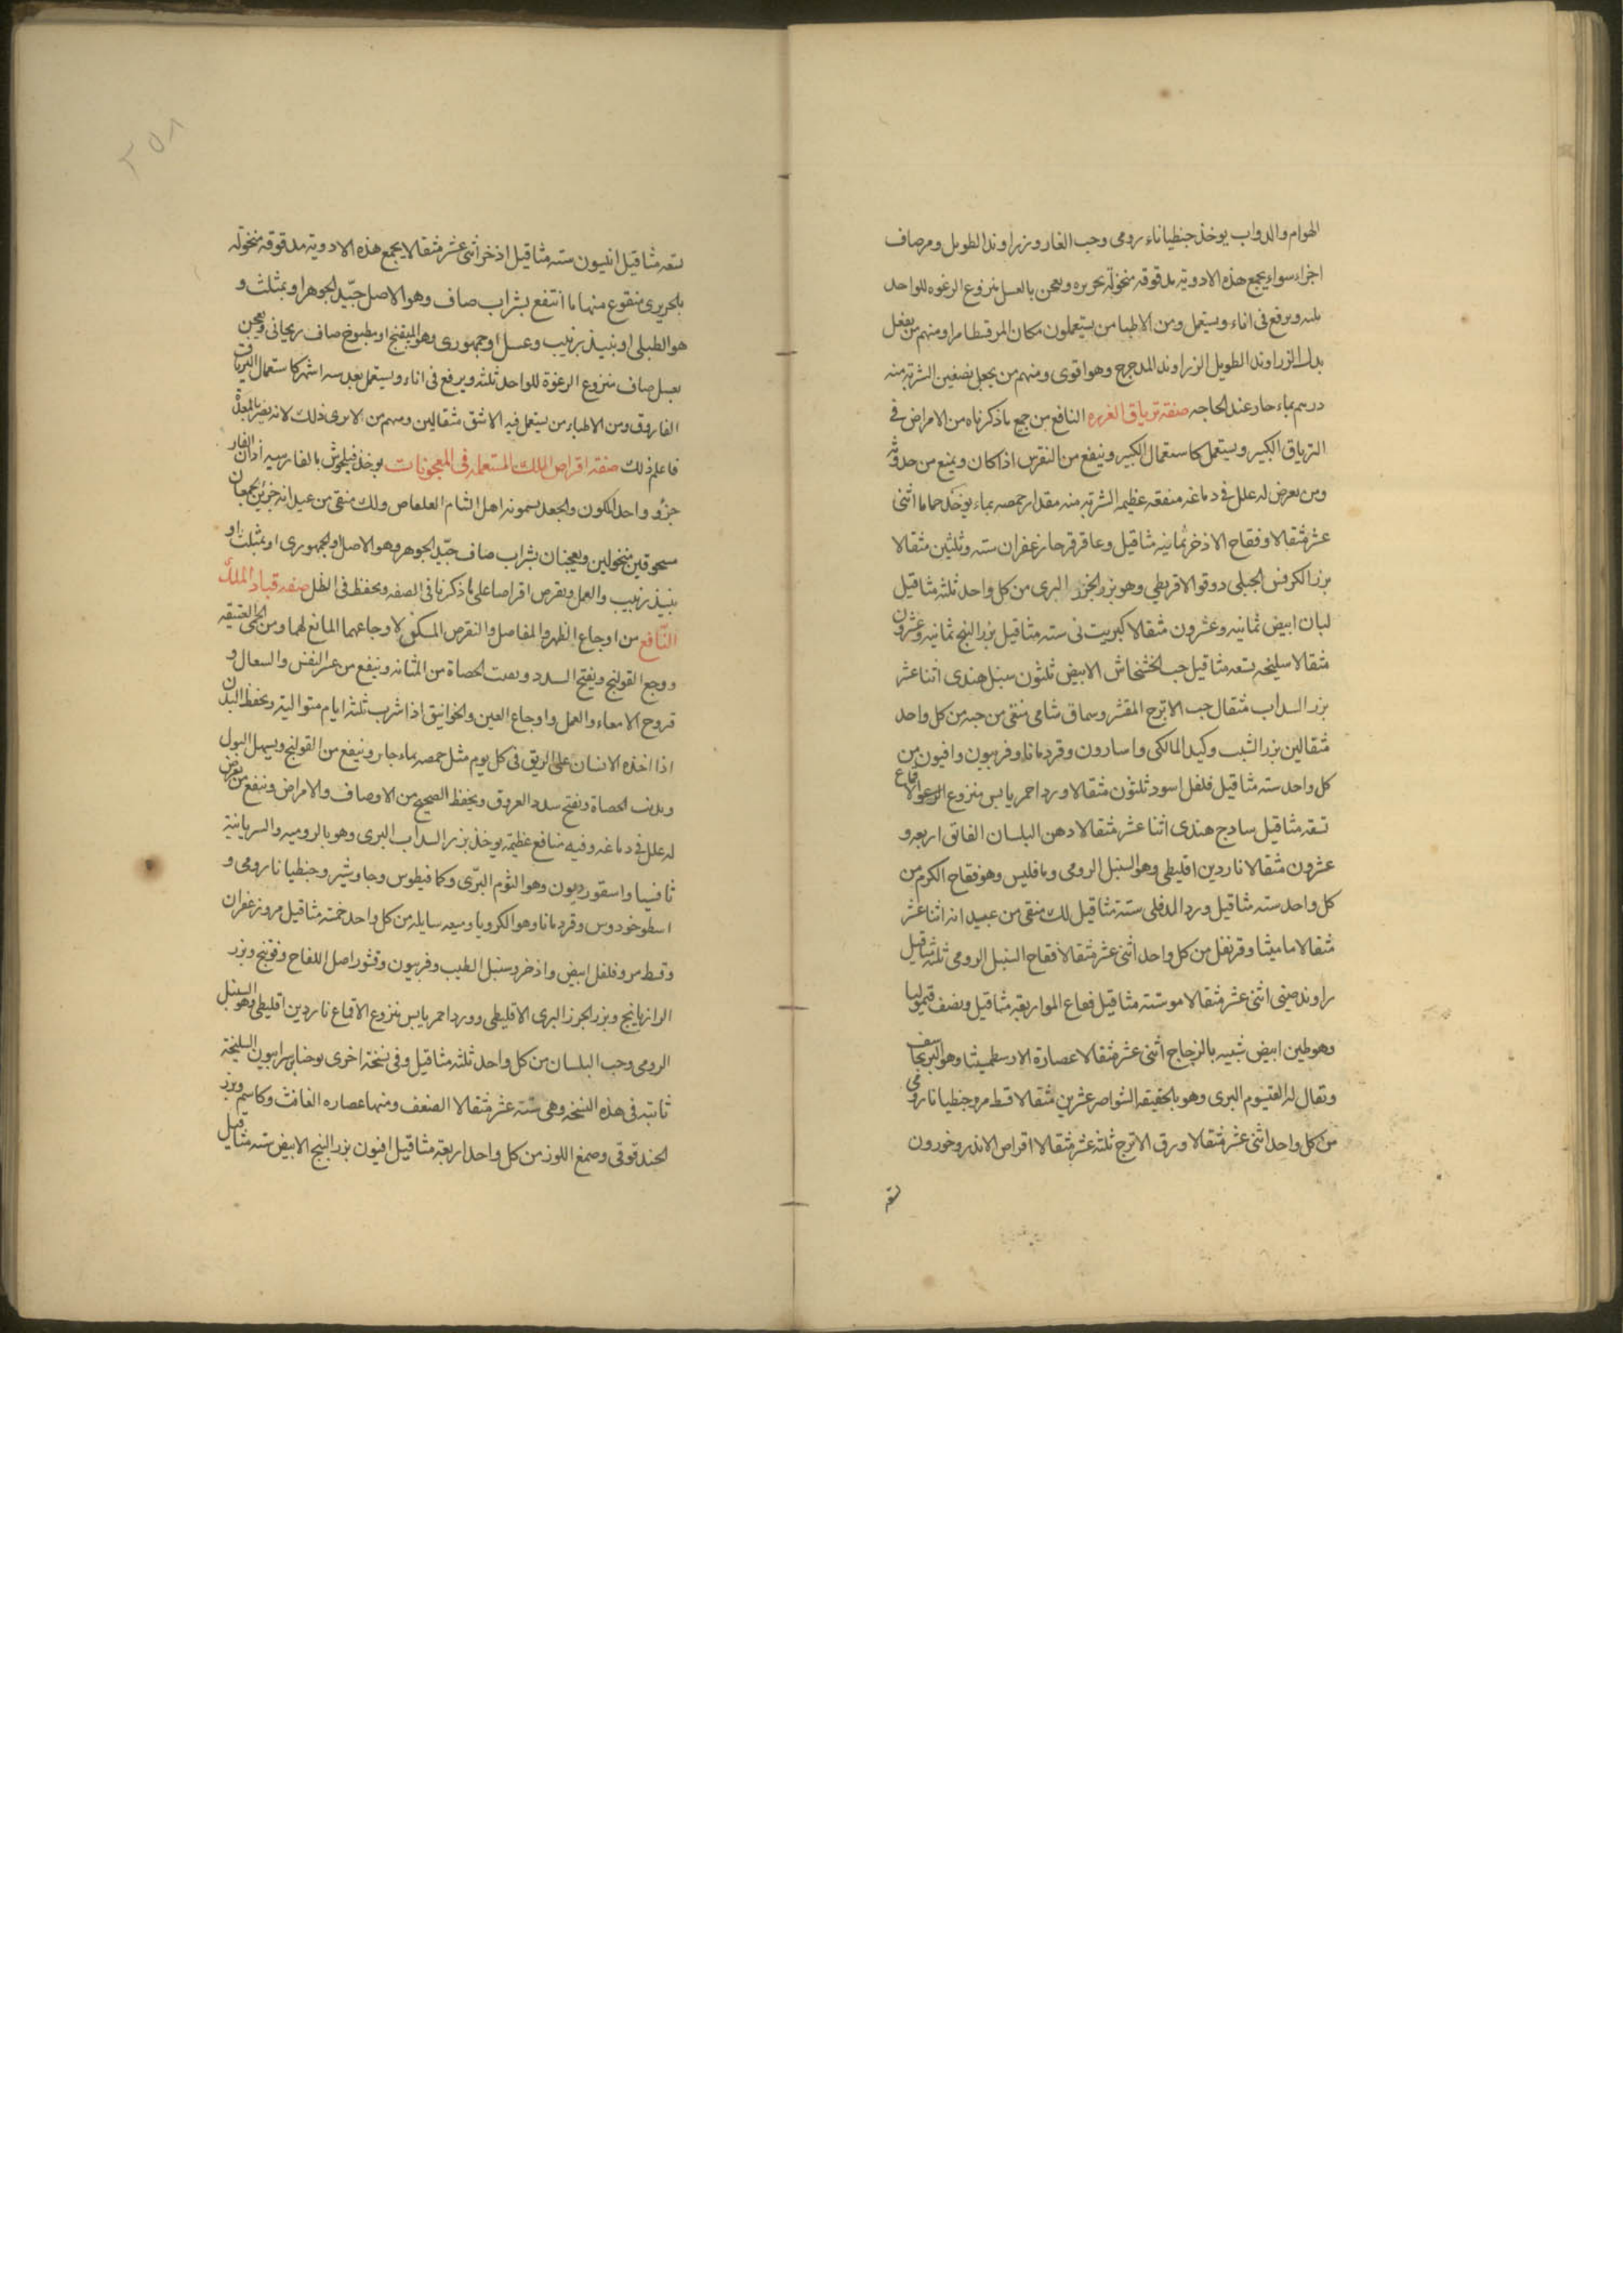 الهوام والدواب يوخذ جنطياناء رومى وحب الغار وزراوند الطويل ومر صاف
اجزاء سواء يجمع هذه الادوية مدقوقة منخولة بحريره ويعجن بالعسل منزوع الرغوه للواحد
ثلثه ويرفع فى اناء ويستعمل ومن الاطبا من يستعملون مكان المر قسطا مرا ومنهم من يجعل
بدل الزراوند الطويل الزراوند المدحرج وهو اقوى ومنهم من يجعل نصفين الشربة منه
درهم بماء حار عند الحاجه صفة ترياق العزره النافع من جميع ما ذكرناه من الامراض فى
الترياق الكبير ويستعمل كاستعمال الكبير وينفع من النقرس اذا كان ويمنع من حدوثه
ومن يعرض له علل فى دماغه منفعه عظيمه الشربة منه مقدار حمصه بماء يوخذ حماما اثنى
عشر مثقالا وفقاح الاذخر ثمانيه مثاقيل وعاقرقرحا زعفران سته وثلثين مثقالا
بزر الكرفس الجبلى دوقوا الاقريطى وهو بزر الجزر البرى من كل واحد ثلثة مثاقيل
لبان ابيض ثمانيه وعشرون مثقالا كبريت نى سته مثاقيل بزر البنج ثمانيه وعشرون
مثقالا سليخه تسعه مثاقيل حب الخشخاش الابيض ثلثون سنبل هندى اثنا عشر
بزر السداب مثقال حب الاترج المقشر وسماق شامى منقى من حبه من كل واحد
مثقالين بزر الشبت وكيد المالكى واسارون وقردمانا وفربيون وافيون من
كل واحد سته مثاقيل فلفل اسود ثلثون مثقالا ورد احمر يابس منزوع الاقماع
تسعة مثاقيل سادج هندى اثنا عشر مثقالا دهن البلسان الفائق اربعه و
عشرون مثقالا ناردين اقليطى وهو السنبل الرومى ومافليس وهو فقاح الكرم من
كل واحد سته مثاقيل ورد الدفلى ستة مثاقيل لك منقى من عيدانه اثنا عشر
مثقالا ماميثا وقرنفل من كل واحد اثنى عشر مثقالا فقاح السنبل الرومى ثلثة مثاقيل
راوند صينى اثنى عشر مثقالا مو ستة مثاقيل فقاح المو اربعة مثاقيل ونصف قيموليا
وهو طين ابيض شبيه بالزجاج اثنى عشر مثقالا عصارة الارسطميثا وهو البرنجاسف
ويقال له القيسوم البرى وهو بالحقيقه الشواصر عشرين مثقالا قسط مر وجنطيانا رومى
من كل واحد اثنى عشر مثقالا ورق الاترج ثلثة عشر مثقالا اقراص الاندروخورون
تسعة
٢٥٨
تسعه مثاقيل انيسون سته مثاقيل اذخر اثنى عشر مثقالا يجمع هذه الادوية مدقوقه منخولة
بالحريرى منقوع منها ما انتقع بشراب صاف وهو الاصل جيد الجوهر او بمثلث و
هو الطبلى او بنبيذ زبيب وعسل او جمهورى وهو الميفختج او مطبوخ صاف ريحانى ويعجن
بعسل صاف منزوع الرغوة للواحد ثلثة ويرفع فى اناء ويستعمل بعد سته اشهر كاستعمال الترياق
الفاروق ومن الاطباء من يستعمل فيه الاشق مثقالين ومنهم من لا يرى ذلك لانه يضر بالمعدة
فاعلم ذلك صفة اقراص الملك المستعمله فى المعجونات يوخذ فيلجوش بالفارسيه أذان الفار
جزؤ واحد الككون والجعد يسمونه اهل الشام العلعاص ولك منقى من عيدانه جزئين يجمعان
مسحوقين منخولين ويعجنان بشراب صاف جيد الجوهر وهو الاصل والجمهورى او بمثلث او
نبيذ زبيب والعمل ويقرص اقراصا على ما ذكرنا فى الصفه ويحفظ فى الظل صفه قباد الملك
النافع من اوجاع الظهر والمفاصل والنقرس المسكن لاوجاعهما المانع لهما ومن الحمى العتيقه
ووجع القولنج ويفتح السدد ويفتت الحصاة من المثانه وينفع من عسر النفس والسعال و
قروح الامعاء والعمل واوجاع العين والخوانيق اذا شرب ثلثة ايام متواليه ويحفظ البدن
اذا اخذه الانسان على الريق فى كل يوم مثل حمصه بماء حار وينفع من القولنج ويسهل البول
ويذيب الحصاة ويفتح سدد العروق ويحفظ الصحيح من الاوصاف والامراض وينفع من يعرض
له علل فى دماغه وفيه منافع عظيمة يوخذ بزر السداب البرى وهو بالروميه والسريانية
ثافسيا واسقورديون وهو الثوم البرّى وكمافيطوس وجاوشير وجنطيانا رومى و
اسطوخودوس وقردمانا وهو الكرويا وميعه سايله من كل واحد خمسة مثاقيل مر وزعفران
وقسط مر وفلفل ابيض واذخر وسنبل الطيب وفربيون وقشور اصل اللفاح وفوتنج وبزر
الرازيانج وبزر الجزر البرى الاقليطى وورد احمر يابس منزوع الاقماع ناردين اقليطى وهو السنبل
الرومى وحب البلسان من كل واحد ثلثة مثاقيل وفى نسخة اخرى يوحنا بن سرابيون السليخة
ثابته فى هذه النسخه وهى ستة عشر مثقالا الضعف ومنها عصاره الغافث وكاسم وبزر
الحندقوقى وصمغ اللوز من كل واحد اربعة مثاقيل افيون بزر البنج الابيض سته مثاقيل